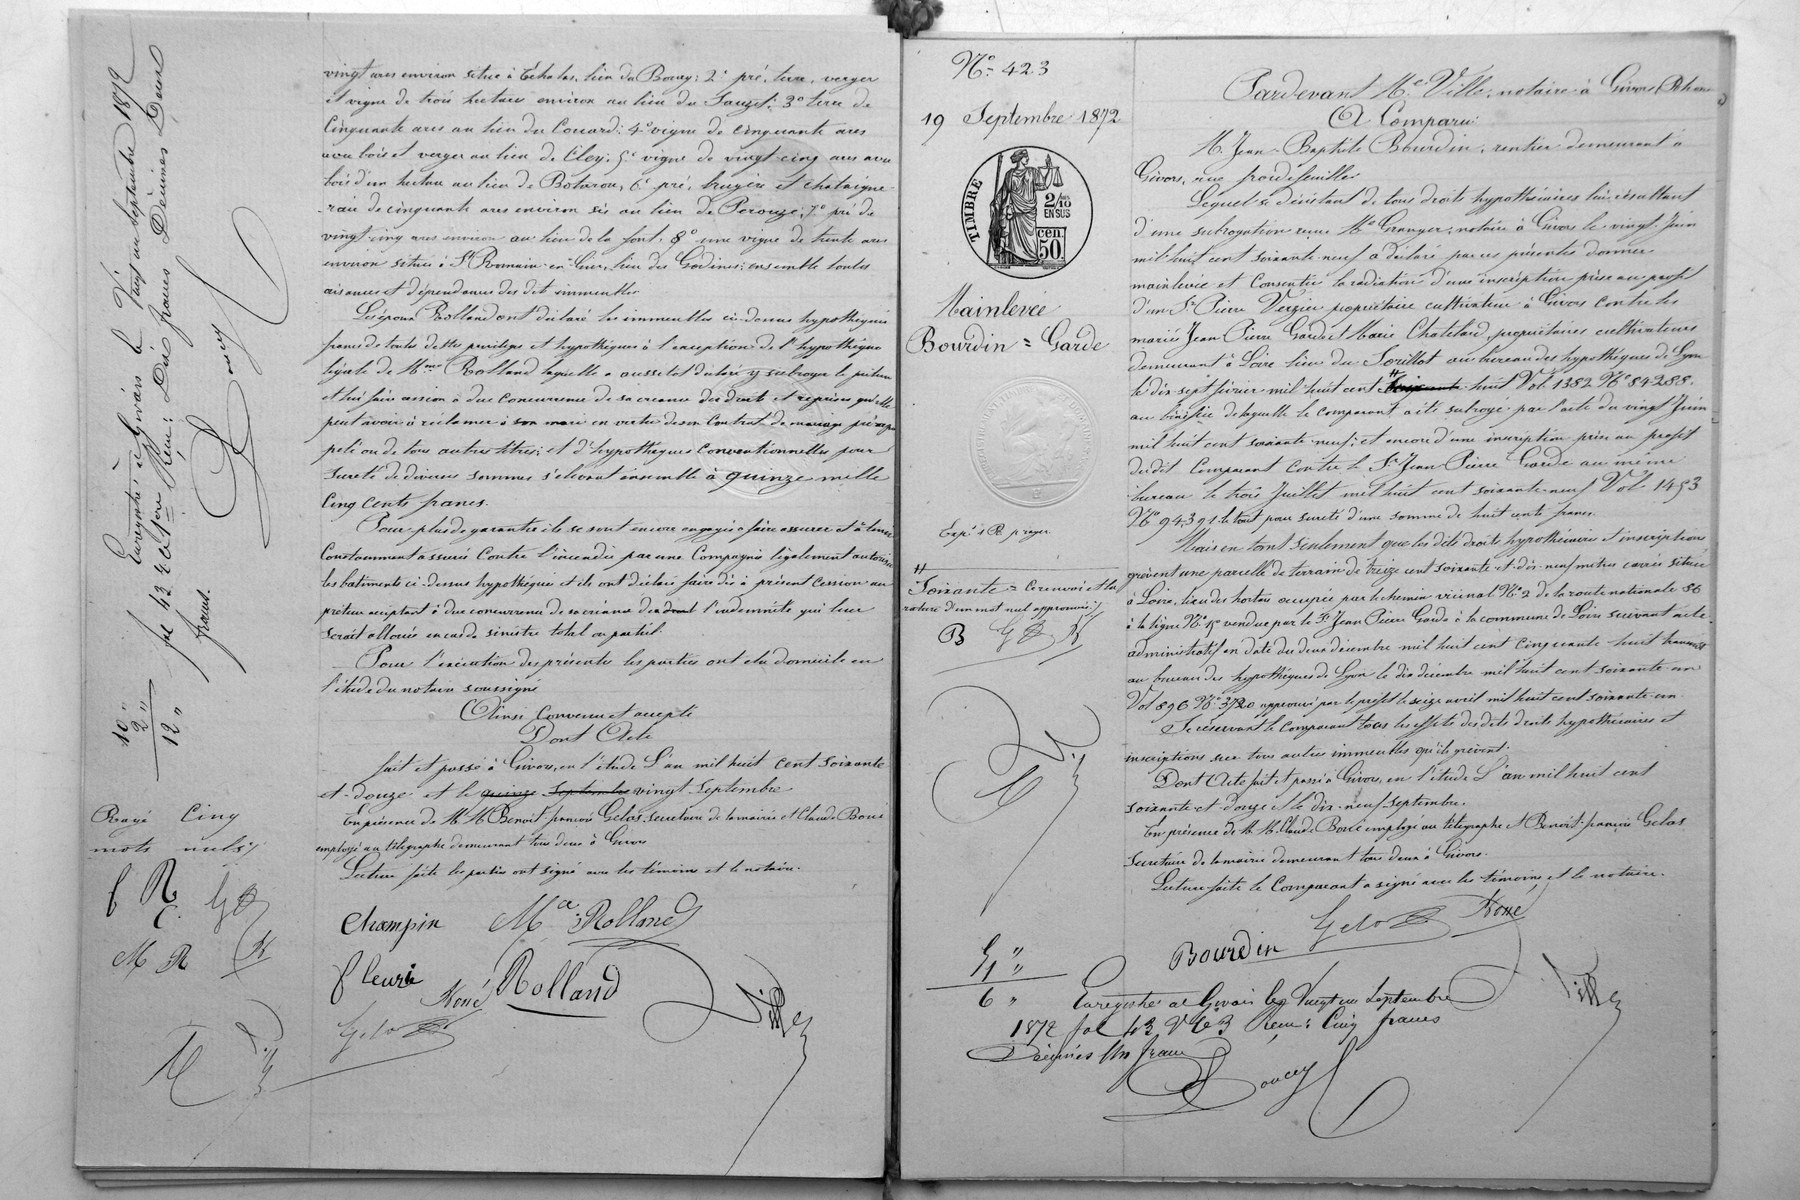 vingt ares environ située à Echalas, lieu du Bourg; 2° pré, terre, verger
et vigne de trois hectares environ au lieu du Sauzet; 3° terre de
Cinquante ares au lieu du Couard; 4° vigne de cinquante ares
avec bois et verger au lieu de Cley; 5° vigne de vingt-cinq ares avec
bois d'un hectare au lieu de Botaron; 6° pré, bruyère et chataigne-
-raie de cinquante ares environ sis au lieu de Perouze; 7° pré de
vingt-cinq ares environ au lieu de la font; 8° une vigne de trente ares
environ située à St Romain-en-Gier, lieu des Godines; ensemble toutes
aisances et dépendances des dits immeubles
Les époux Rolland ont déclaré les immeubles ci-dessus hypothéqués
francs de toutes dettes privilèges et hypothèques à l'exception de l'hypothèque
légale de Mme Rolland laquelle a aussitôt déclaré y subroger le prêteur
et lui faire cession à due concurrence de sa créance des droits et reprises qu'elle
peut avoir à réclamer à son mari en vertu de son Contrat de mariage
ou de tous autres titres; et d'hypothèques Conventionnelles pour
sureté de diverses sommes s'élevant ensemble à quinze mille
Cinq Cents francs.
Pour plus de garantie ils se sont encore engagés à faire assurer et à tenir
Constamment assurés Contre l'incendie par une Compagnie légalement autorisée
les batiments ci-dessus hypothéqués et ils ont déclaré faire dès à présent Cession au
prêteur acceptant à due concurrence de sa créance des droits l'indemnité qui leur
serait allouée en cas de sinistre total ou partiel.
Pour l'exécution des présentes les parties ont élu domicile en
l'étude du notaire soussigné
Ainsi Convenu et accepté
Dont Acte
fait et passé à Givors, en l'étude L'an mil huit cent soixante
et-douze et le quinze Septembre vingt-Septembre
En présence de M.M. Benoit-françois Gelas, secrétaire de la mairie et Claude Boné
employé au télégraphe demeurant tous deux à Givors
Lecture faite les parties ont signé avec les témoins et le notaire.
Champin Ma Rolland
fleuri Boné Rolland
Gelas Ville
Enregistré à Givors le Vingt un Septembre 1872
fol 43 Reçu: Dix francs Décimes Deux
francs.
Doucey
10 "
2 "
12 "
Rayé Cinq
mots nuls
f R G
C.
M R B
N° 423
19 Septembre 1872
TIMBRE
2/10
EN SUS
50 cen.
Mainlevée
Bourdin = Garde
Soixante = Ce renvoi et la
rature d'un mot nul approuvés
B G B
Pardevant Me Ville, notaire à Givors, Rhône
A Comparu
M. Jean-Baptiste Bourdin, rentier demeurant à
Givors, rue froidefeuille
Lequel se désistant de tous droits hypothécaires lui résultant
d'une subrogation reçue Me Granger, notaire à Givors le vingt Juin
mil huit cent soixante-neuf a déclaré par ces présentes donner
mainlevée et Consentir la radiation d'une inscription prise au profit
d'un Sr Pierre Verzier propriétaire cultivateur à Givors Contre les
mariés Jean Pierre Garde et Marie Chatelard, propriétaires cultivateurs
demeurant à Loire lieu du Sorillot au bureau des hypothèques de Lyon
le dix sept février mil huit cent huit Vol. 1382 N° 84288.
au bénéfice de laquelle le comparant a été subrogé par l'acte du vingt Juin
mil huit cent soixante-neuf; et encore d'une inscription prise au profit
dudit Comparant Contre le Sr Jean Pierre Garde au même
bureau le trois Juillet mil huit cent soixante-neuf Vol. 1453
N° 94391 le tout pour sureté d'une somme de huit cents francs.
Mais en tant seulement que les dits droits hypothécaires et inscriptions
grèvent une parcelle de terrain de treize cent soixante-et-dix-neuf mètres carrés située
à Loire, lieu des hortes occupée par le chemin vicinal N° 2 de la route nationale 86
à la ligne N° 15 vendue par le Sr Jean Pierre Garde à la commune de Loire suivant acte
administratif en date du deux décembre mil huit cent cinquante huit transcrit
au bureau des hypothèques de Lyon le dix décembre mil huit cent soixante un
Vol 896 N° 3720 approuvé par le préfet le seize avril mil huit cent soixante-un.
Se réservant le Comparant tous les effets des dits droits hypothécaires et
inscriptions sur tous autres immeubles qu'ils grèvent.
Dont Acte fait et passé à Givors, en l'étude L'an mil huit cent
soixante-et-douze et le dix-neuf septembre.
En présence de M.M. Claude Boné employé au télégraphe et Benoit-françois Gelas
secrétaire de la mairie demeurant tous deux à Givors.
Lecture faite le Comparant a signé avec les témoins et le notaire.
Bourdin Gelas Boné
Ville
5 "
1 "
6 "
Enregistré à Givors le Vingt un Septembre
1872 fol 43 Reçu: Cinq francs
Décimes Un franc
Doucey